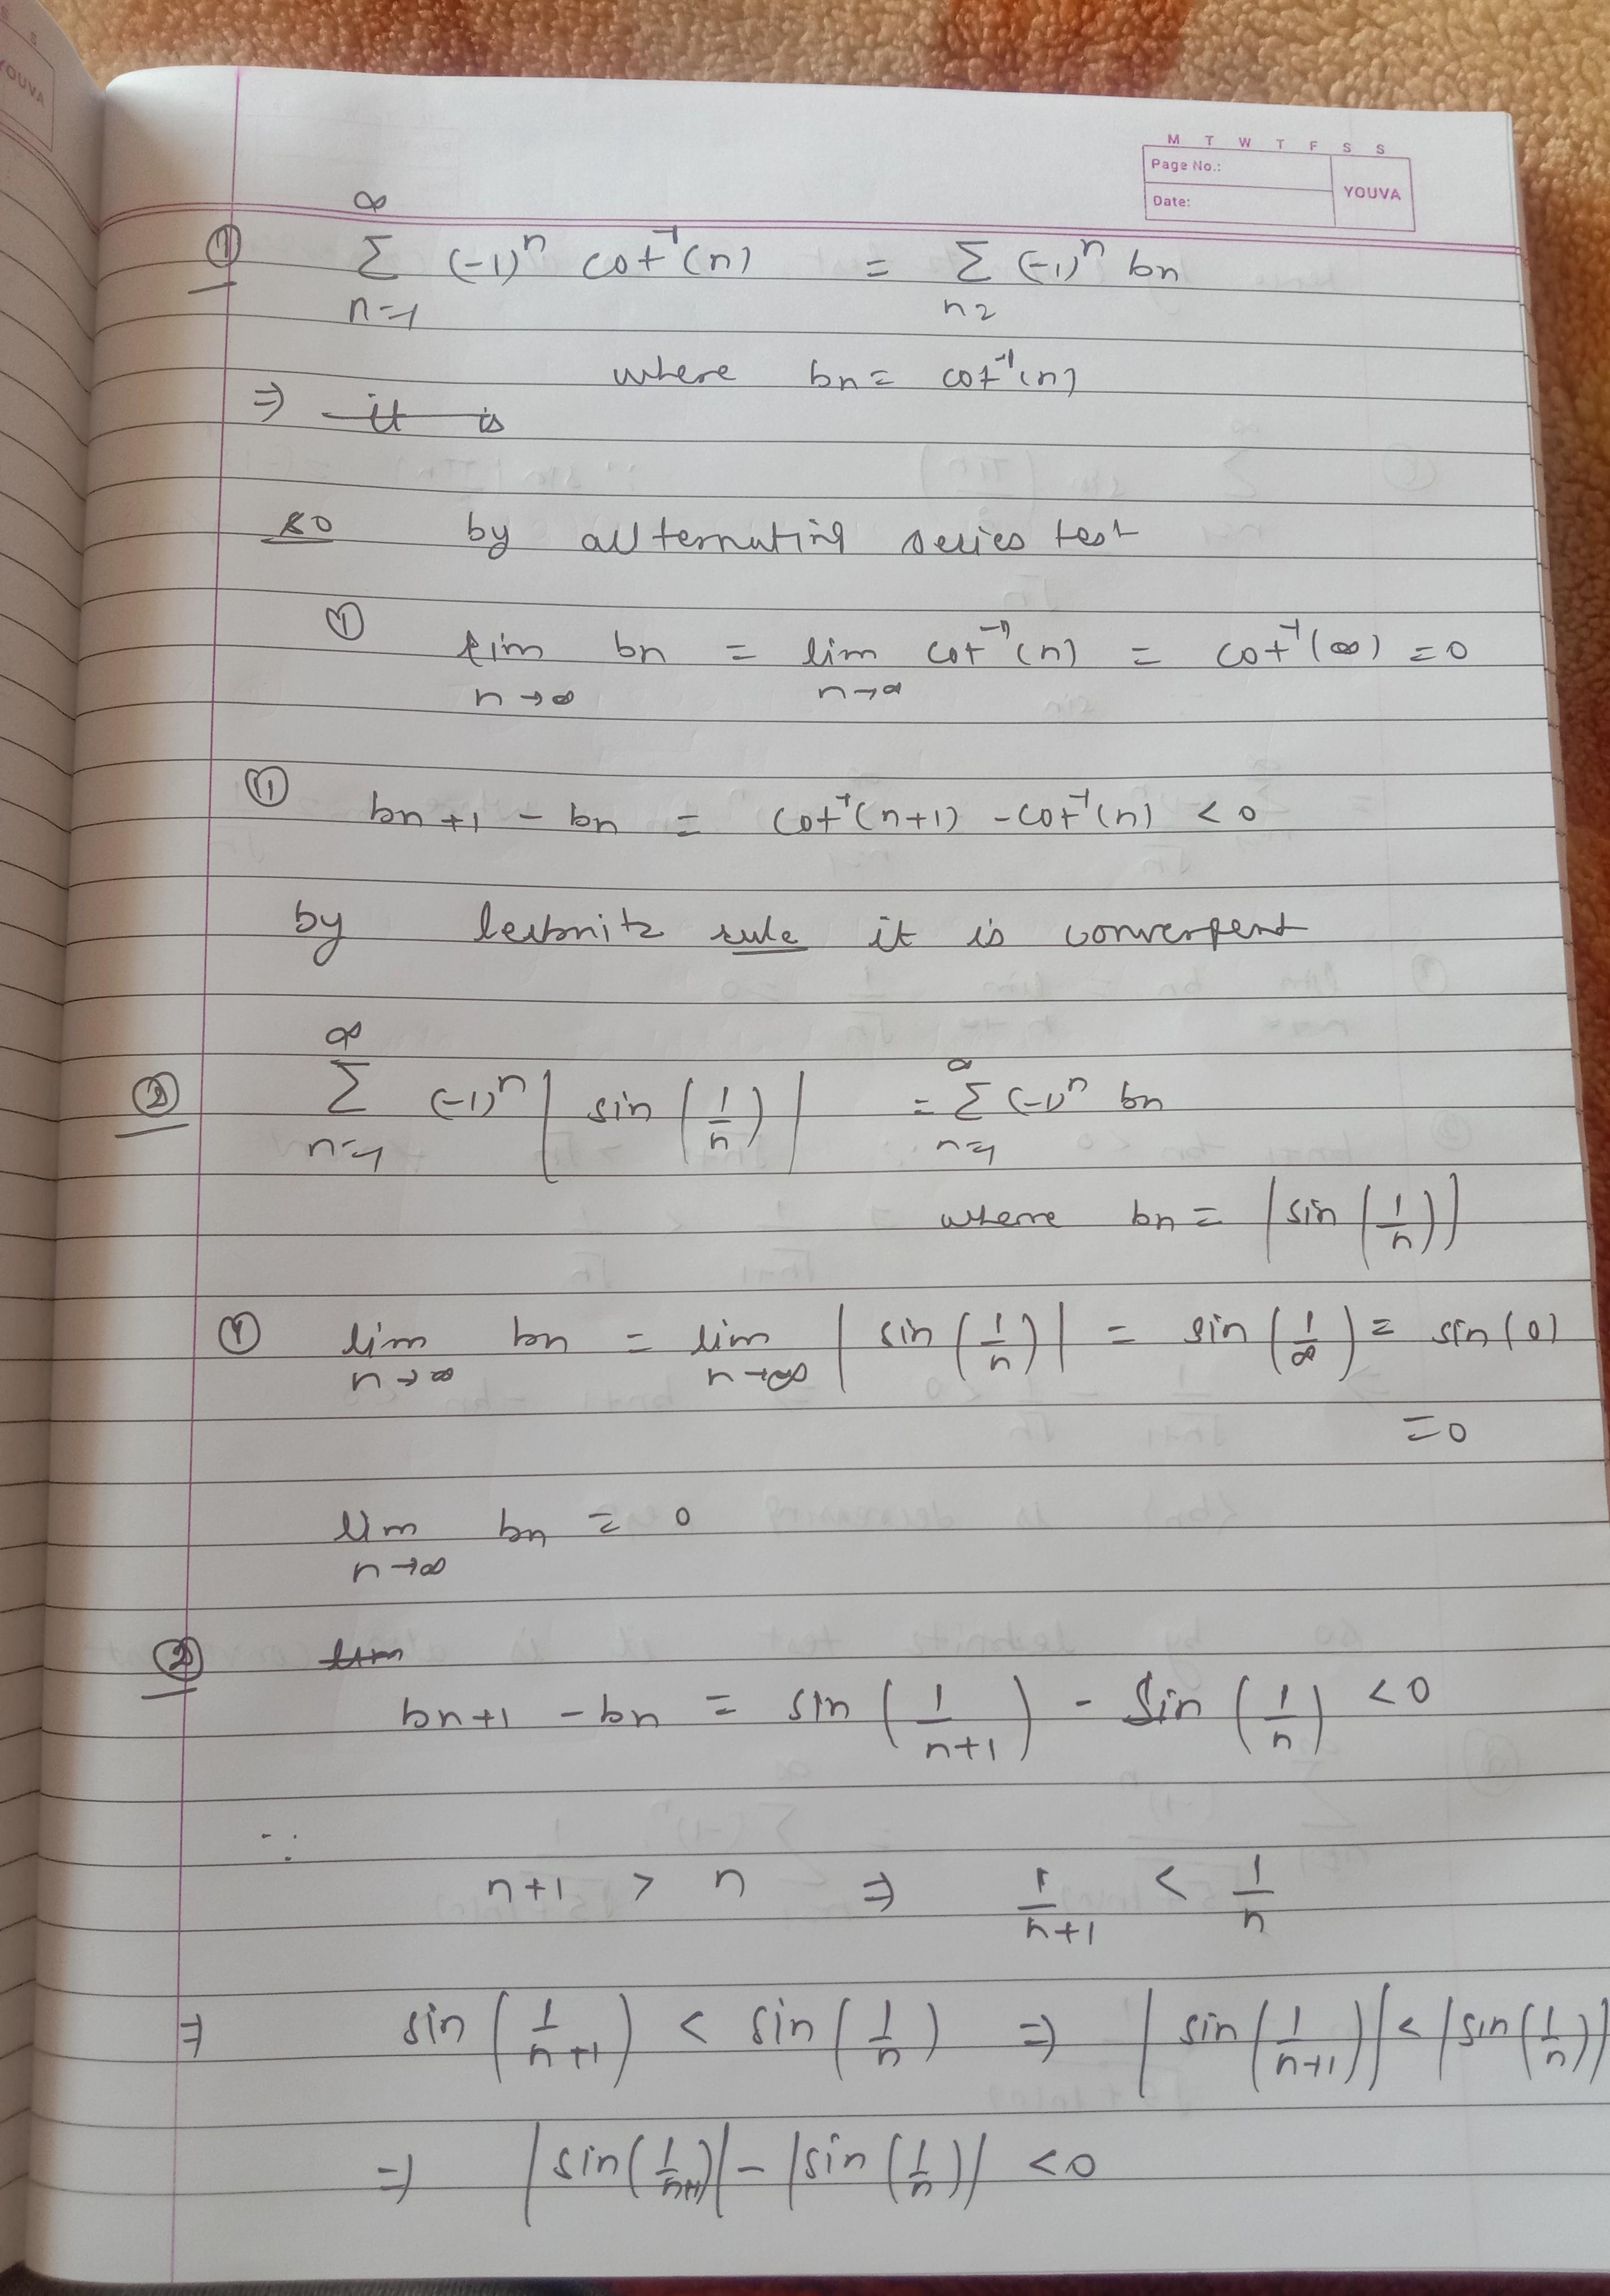 S
YOUVA
M T W T F S S
Page No.:
YOUVA
Date:
① ∑_{n=1}^{∞} (-1)^n cot^{-1}(n) = ∑_{n=} (-1)^n bn
where bn = cot^{-1}(n)
⇒ it is
so by alternating series test
① lim_{n→∞} bn = lim_{n→∞} cot^{-1}(n) = cot^{-1}(∞) = 0
⑪ bn+1 - bn = cot^{-1}(n+1) - cot^{-1}(n) < 0
by leibnitz rule it is convergent
② ∑_{n=1}^{∞} (-1)^n | sin (1/n) | = ∑_{n=1}^{∞} (-1)^n bn
where bn = | sin (1/n) |
① lim_{n→∞} bn = lim_{n→∞} | sin (1/n) | = sin (1/∞) = sin(0)
= 0
lim_{n→∞} bn = 0
② lim
bn+1 - bn = sin (1/(n+1)) - sin (1/n) < 0
∵
n+1 > n ⇒ 1/(n+1) < 1/n
⇒ sin (1/(n+1)) < sin (1/n) ⇒ | sin (1/(n+1)) | < | sin (1/n) |
⇒ | sin (1/(n+1)) | - | sin (1/n) | < 0